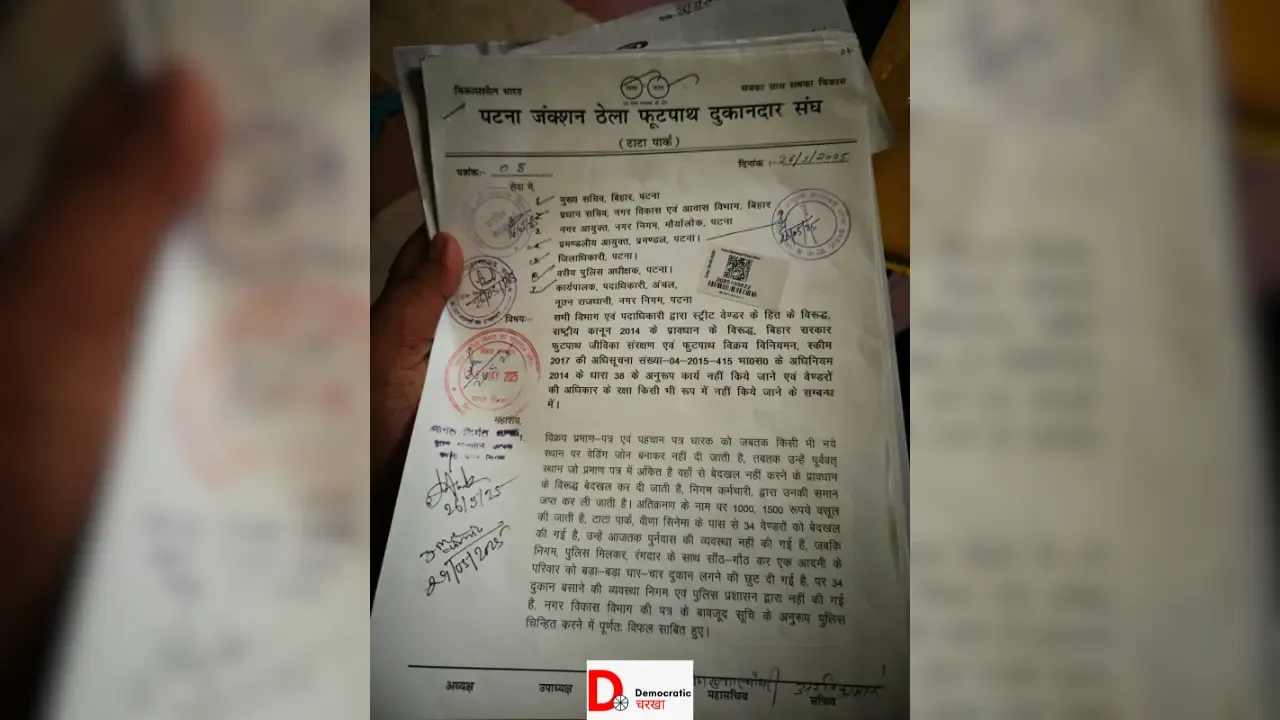 विकासशील भारत
सबका साथ सबका विकास
पटना जंक्शन ठेला फूटपाथ दुकानदार संघ
(टाटा पार्क)
पत्रांक:- 08
दिनांक :- 26/5/2025
सेवा में,
मुख्य सचिव, बिहार, पटना
प्रधान सचिव, नगर विकास एवं आवास विभाग, बिहार
नगर आयुक्त, नगर निगम, मौर्यालोक, पटना
प्रमण्डलीय आयुक्त, प्रमण्डल, पटना।
जिलाधिकारी, पटना।
वरीय पुलिस अधीक्षक, पटना।
कार्यपालक, पदाधिकारी, अंचल,
नूतन राजधानी, नगर निगम, पटना
विषय:- सभी विभाग एवं पदाधिकारी द्वारा स्ट्रीट वेण्डर के हित के विरूद्ध,
राष्ट्रीय कानून 2014 के प्रावधान के विरूद्ध, बिहार सरकार
फुटपाथ जीविका संरक्षण एवं फुटपाथ विक्रय विनियमन, स्कीम
2017 की अधिसूचना संख्या-04-2015-415 भा०स० के अधिनियम
2014 के धारा 38 के अनुरूप कार्य नहीं किये जाने एवं वेण्डरों
की अधिकार के रक्षा किसी भी रूप में नहीं किये जाने के सम्बन्ध
में।
महाशय,
1. विक्रय प्रमाण-पत्र एवं पहचान पत्र धारक को जबतक किसी भी नये
स्थान पर वेंडिंग जोन बनाकर नहीं दी जाती है, तबतक उन्हें पूर्ववत्
स्थान जो प्रमाण पत्र में अंकित है वहाँ से बेदखल नहीं करने के प्रावधान
के विरूद्ध बेदखल कर दी जाती है, निगम कर्मचारी, द्वारा उनकी समान
जप्त कर ली जाती है। अतिक्रमण के नाम पर 1000, 1500 रूपये वसूल
की जाती है, टाटा पार्क, वीणा सिनेमा के पास से 34 वेण्डरों को बेदखल
की गई है, उन्हें आजतक पुर्नवास की व्यवस्था नहीं की गई हैं, जबकि
निगम, पुलिस मिलकर, रंगदार के साथ साँठ-गाँठ कर एक आदमी के
परिवार को बड़ा-बड़ा चार-चार दुकान लगने की छुट दी गई है, पर 34
दुकान बसाने की व्यवस्था निगम एवं पुलिस प्रशासन द्वारा नहीं की गई
है, नगर विकास विभाग की पत्र के बावजूद सूचि के अनुरूप पुलिस
चिन्हित करने में पूर्णतः विफल साबित हुए।
26/5/25
29/05/2025
अध्यक्ष
उपाध्यक्ष
महासचिव
सचिव
Democratic
चरखा